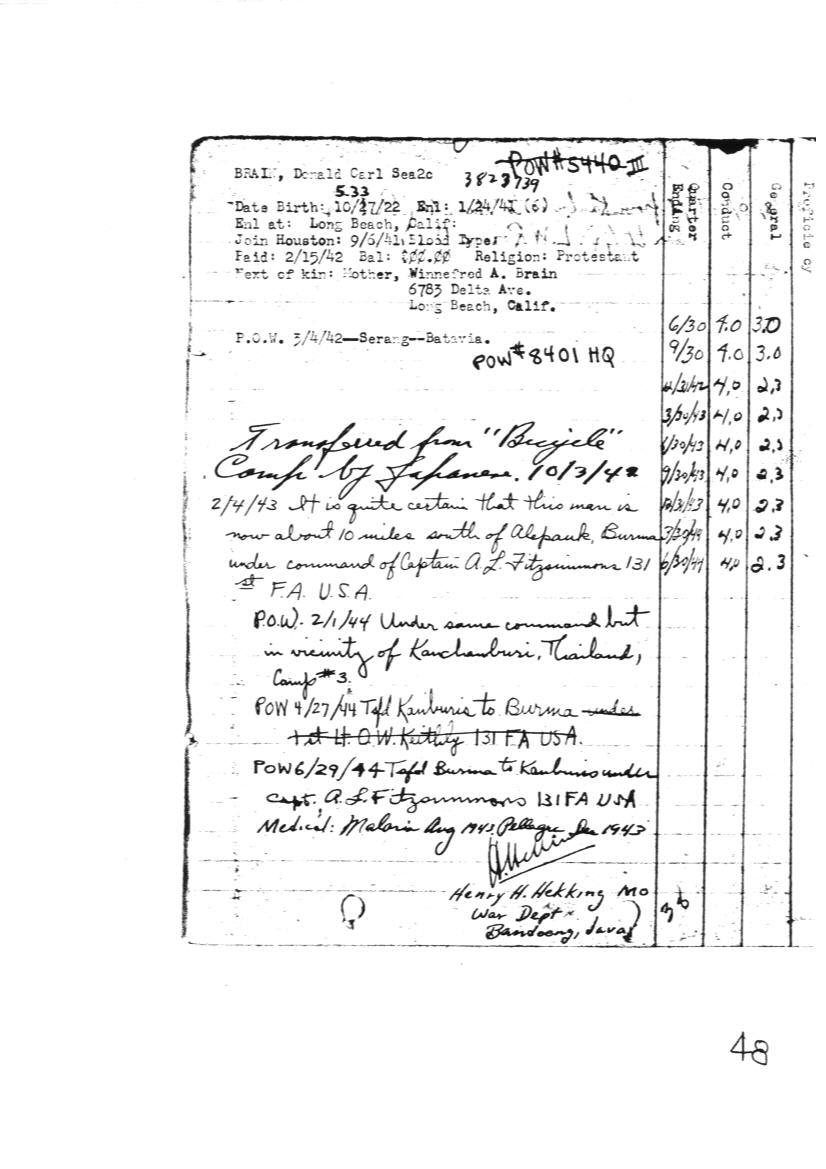 POW# 5440 III
BRAIN, Donald Carl Sea2c 3823739
5.33
Date Birth: 10/27/22 Enl: 1/24/41 (6)
Enl at: Long Beach, Calif:
Join Houston: 9/6/41 Blood Type:
Paid: 2/15/42 Bal: $00.00 Religion: Protestant
Next of kin: Mother, Winnefred A. Brain
6783 Delta Ave.
Long Beach, Calif.
P.O.W. 3/4/42--Serang--Batavia.
POW# 8401 HQ
Transferred from "Bicycle"
Camp by Japanese. 10/3/42
2/4/43 It is quite certain that this man is
now about 10 miles south of Alepauk, Burma
under command of Captain A. L. Fitzsimmons 131
st F.A. U.S.A.
P.O.W. 2/1/44 Under same command but
in vicinity of Kanchanburi, Thailand,
Camp #3.
POW 4/27/44 Tsfd Kanburis to Burma under
1st Lt. O.W. Keithly 131 FA USA.
POW 6/29/44 Tsfd Burma to Kanburis under
Capt. A. L. Fitzsimmons 131 FA USA
Medical: Malaria Aug 1943 Pellagra Dec 1943
Henry H. Hekking MO
War Dept
Bandoeng, Java
Quarter Ending Conduct General Proficiency
6/30 4.0 3.0
9/30 4.0 3.0
12/31/42 4.0 2.3
3/30/43 4.0 2.3
6/30/43 4.0 2.3
9/30/43 4.0 2.3
12/31/43 4.0 2.3
3/30/44 4.0 2.3
6/30/44 4.0 2.3
48